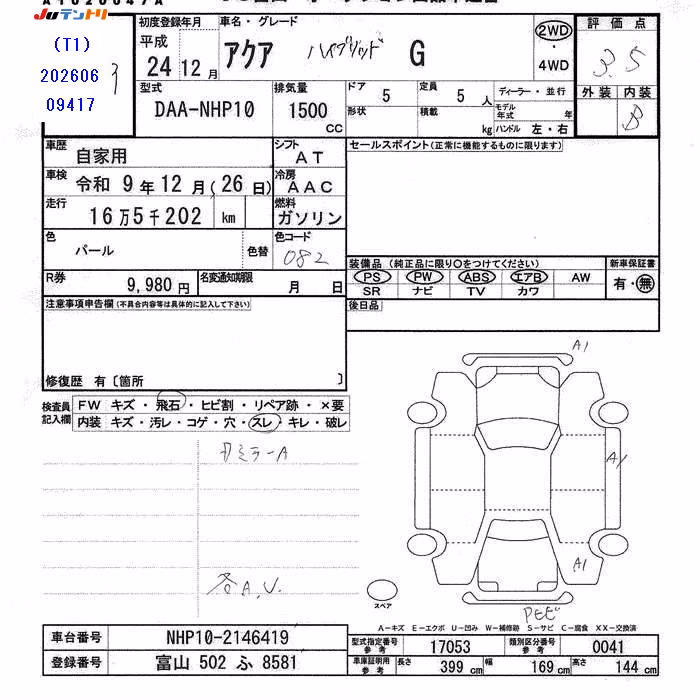 JUテントリ
(T1)
202606
09417
初度登録年月 平成 24 12月
車名・グレード アクア ハイブリッド G
2WD ・ 4WD
評価点 3.5
外装 内装 B
型式 DAA-NHP10
排気量 1500 CC
ドア 5 定員 5 人
形状 積載 kg
ディーラー・並行
モデル年式 年
ハンドル 左・右
車歴 自家用
シフト AT
車検 令和 9年 12月(26日)
冷房 AAC
走行 16万5千202 km
燃料 ガソリン
色 パール 色替
色コード 082
R券 9,980円
名変通知期限 月 日
セールスポイント(正常に機能するものに限ります)
装備品(純正品に限り○をつけてください)
新車保証書
PS PW ABS エアB AW
有・無
SR ナビ TV カワ
後日品
注意事項申告欄(不具合内容等は具体的に記入して下さい)
修復歴 有〔箇所 〕
検査員記入欄
FW キズ・飛石・ヒビ割・リペア跡・×要
内装 キズ・汚レ・コゲ・穴・スレ・キレ・破レ
各A.U.
A1
A1
A1
スペア
A-キズ E-エクボ U-凹み W-補修跡 S-サビ C-腐食 XX-交換済
車台番号 NHP10-2146419
登録番号 富山 502 ふ 8581
型式指定番号 参考 17053
類別区分番号 参考 0041
車庫証明用 参考 長さ 399 cm 幅 169 cm 高さ 144 cm